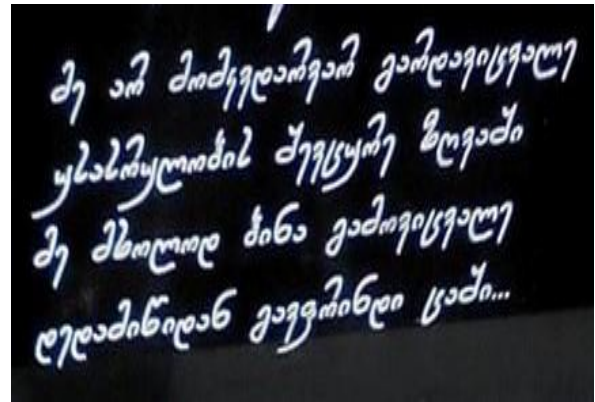 მე არ მომკვდარვარ გარდავიცვალე
უსასრულობის შევცურე ზღვაში
მე მხოლოდ ბინა გამოვიცვალე
დედამიწიდან გავფრინდი ცაში...